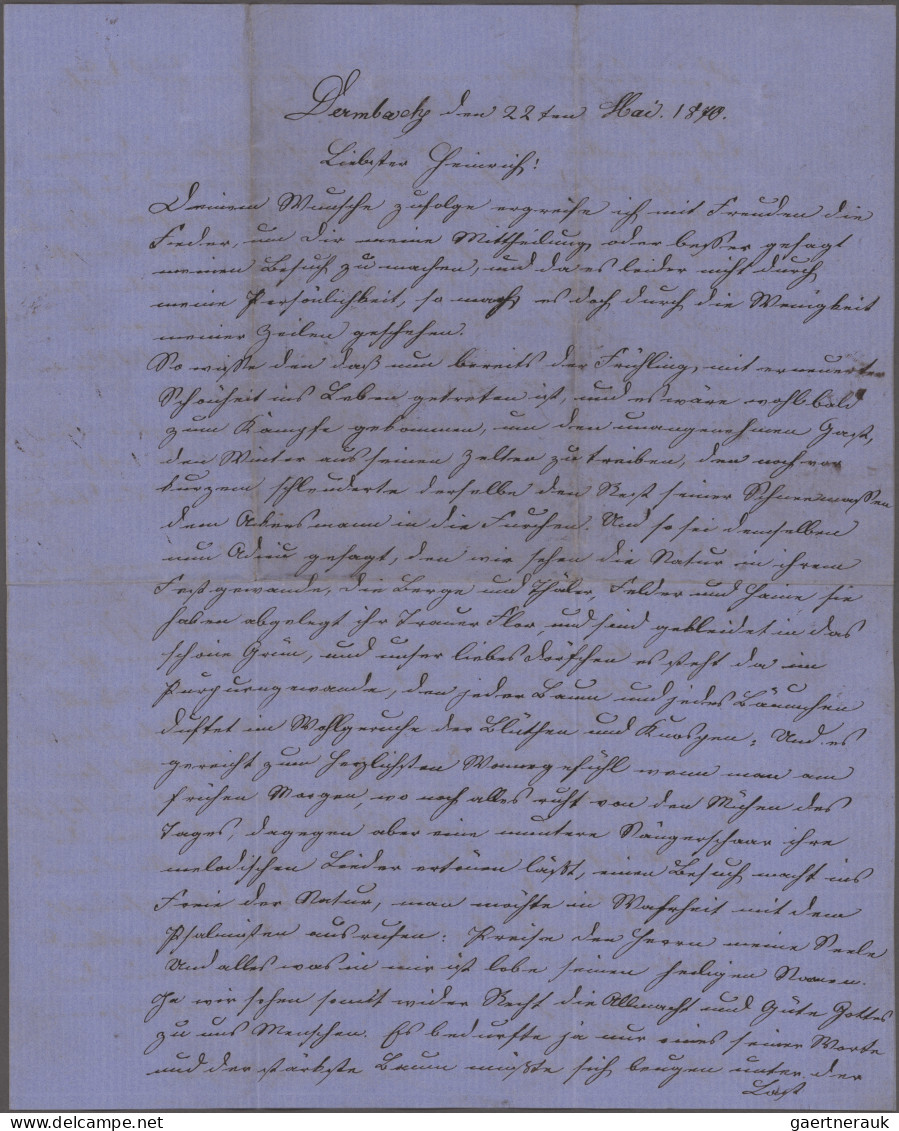 Dermbach den 22ten Mai. 1870.
Liebster Heinrich!
Deinem Wunsche zufolge ergreife ich mit Freuden die
Feder, um Dir meine Mittheilung oder besser gesagt
meinen Besuch zu machen, und da es leider nicht durch
meine Persönlichkeit, so mach es doch durch die Wenigkeit
meiner Zeilen geschehen.
So wisse den daß nun bereits der Frühling, mit erneuerter
Schönheit ins Leben getreten ist, und es wäre wohl bald
zum Kampfe gekommen, um den unangenehmen Gast,
den Winter aus seinen Zelten zu treiben, den noch vor
kurzem schleuderte derselbe den Rest seiner Schneemassen
dem Akersmann in die Furchen. Und so sei demselben
nun Adieu gesagt, den wir sehen die Natur in ihrem
Festgewande, die Berge und Thäler, Felder und Haine sie
haben abgelegt ihr Trauer Flor, und sind gekleidet in das
schöne Grün, und unser liebes Dörfchen es steht da im
Purpurngewande, den jeder Baum und jedes Bäumchen
duftet im Wohlgeruche der Blüthen und Knospen; Und es
gereicht zum herzlichsten Wonnegefühl wenn man am
frühen Morgen, wo noch alles ruht von den Mühen des
Tages, dagegen aber eine muntere Sängerschaar ihre
melodischen Lieder ertönen läßt, einen Besuch macht ins
Freie der Natur, man möchte in Wahrheit mit dem
Psalmisten ausrufen: Preise den Herrn meine Seele
Und alles was in mir ist lobe seinen heiligen Namen.
Ja wir sehen somit wider Recht die Allmacht und Güte Gottes
zu uns Menschen. Es bedurfte ja nur eines seiner Worte
und der stärkste Baum müßte sich beugen unter der
Last
gaertnerauk